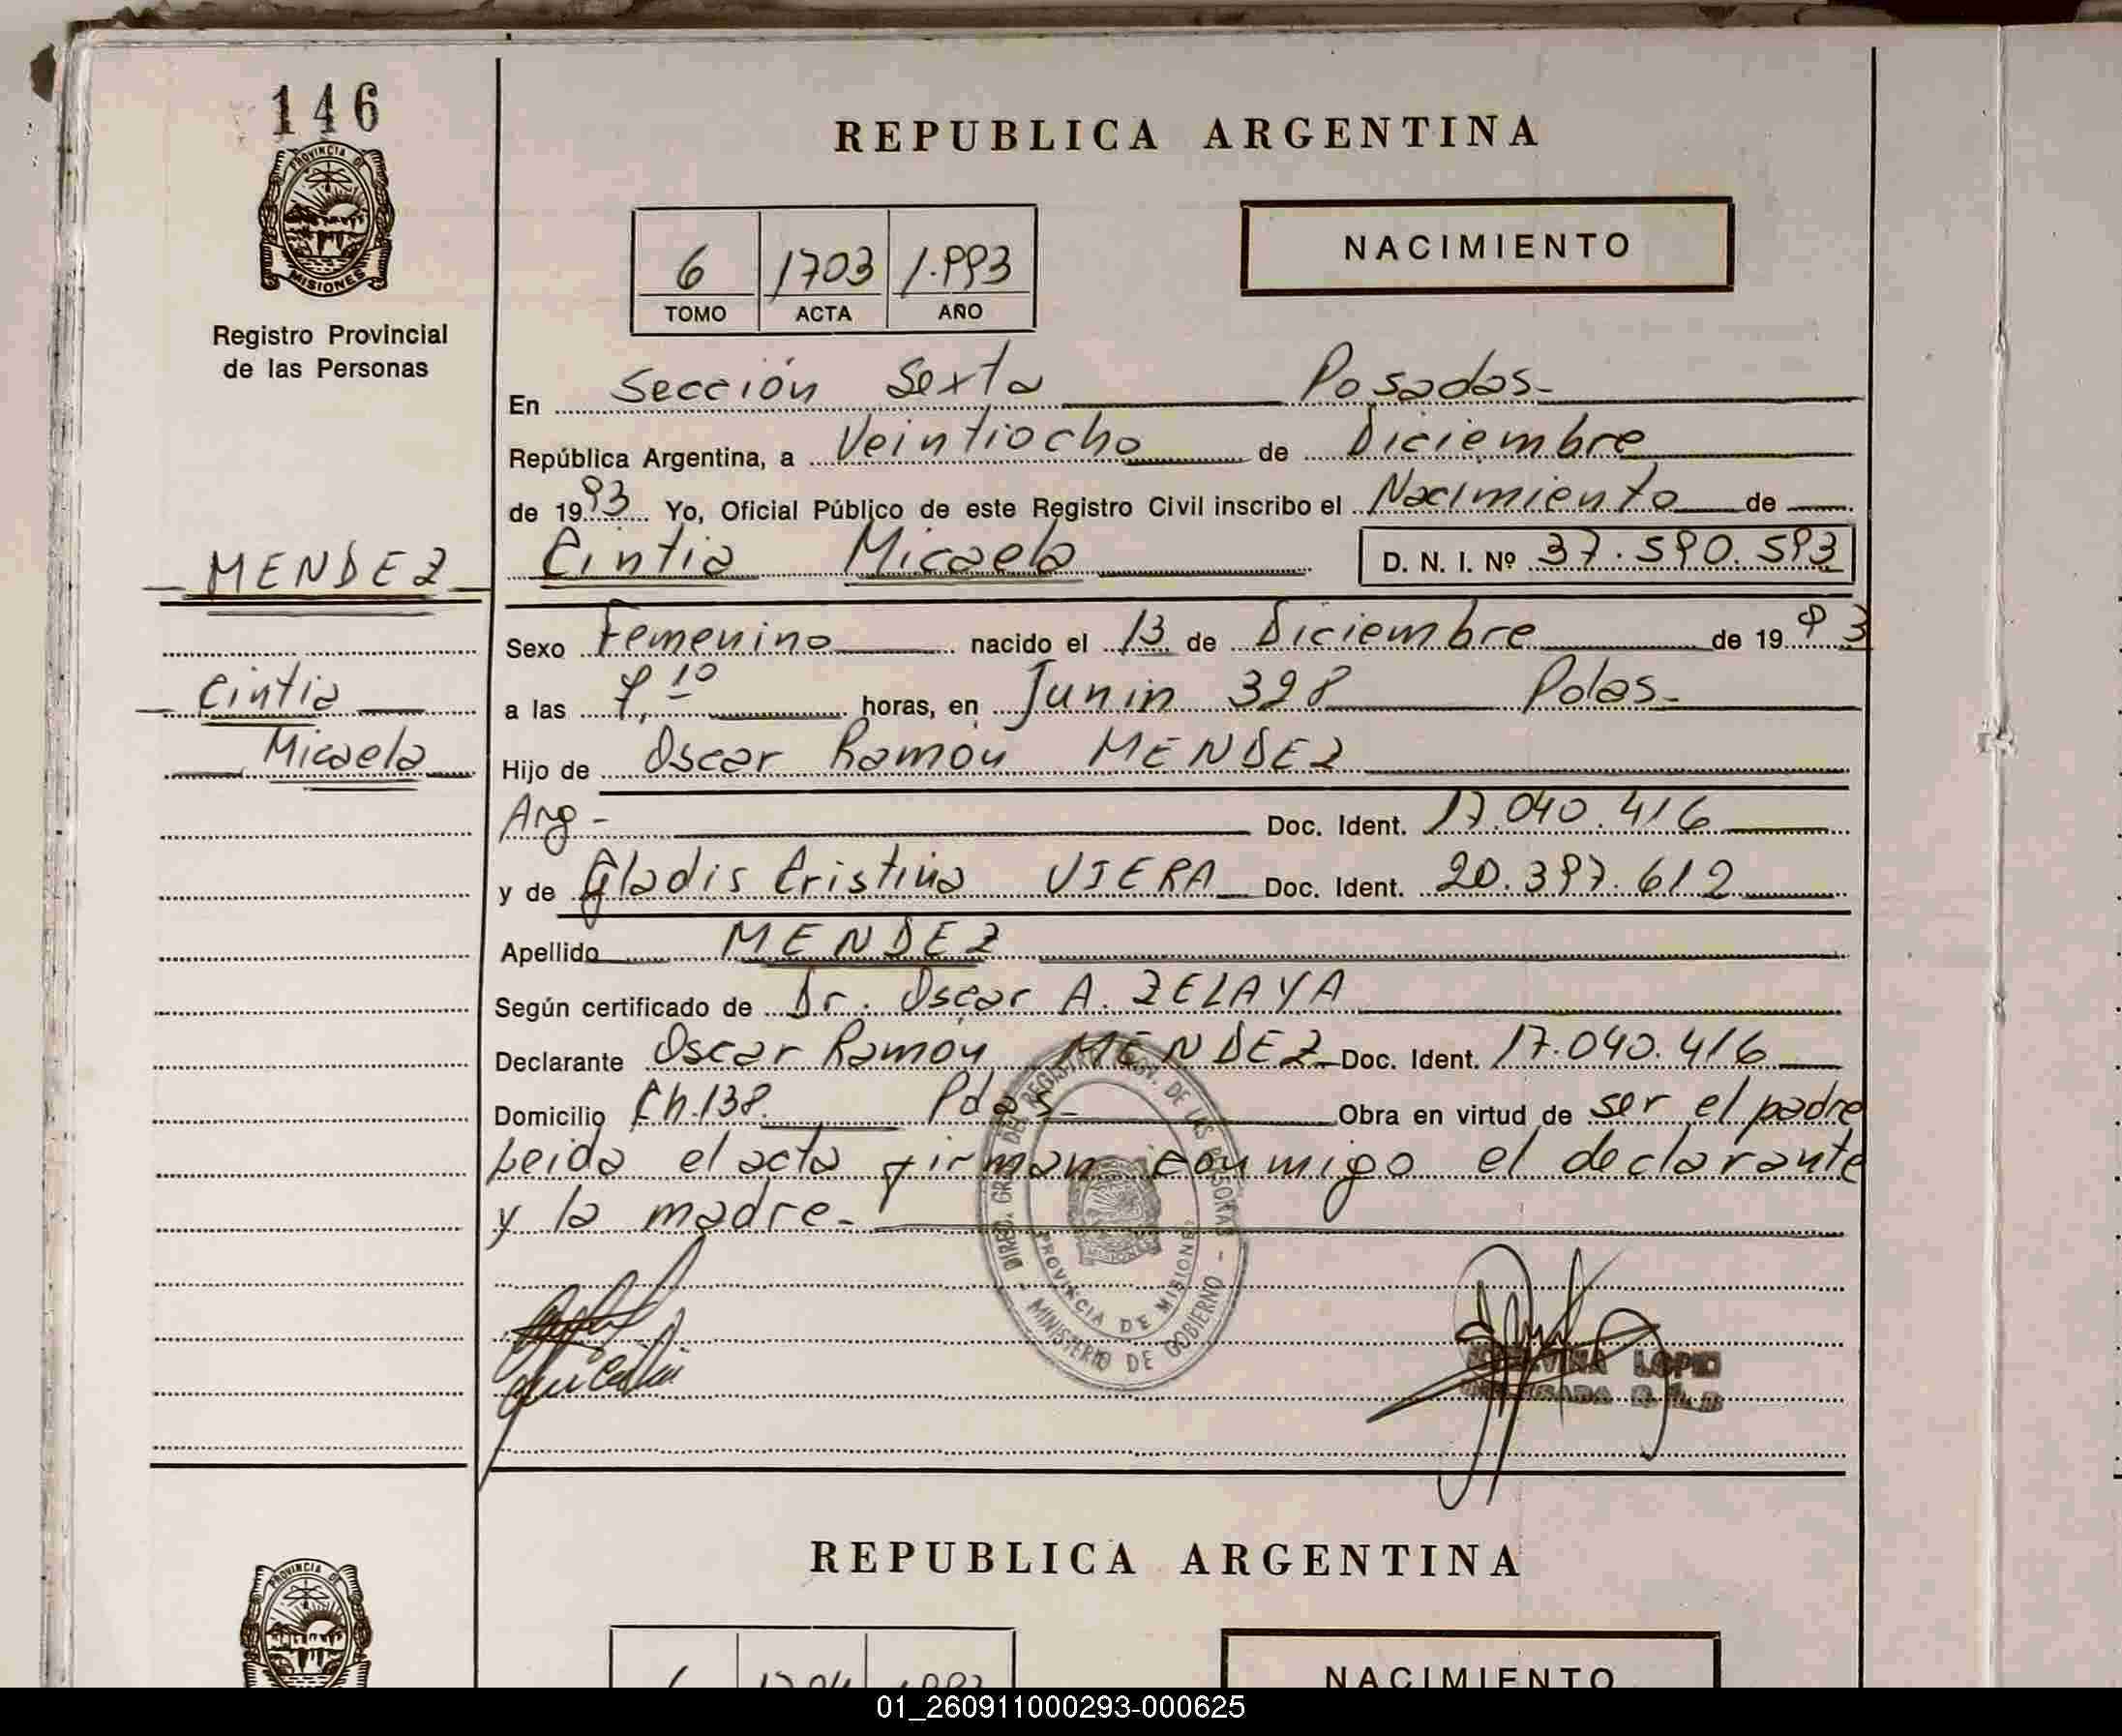 146
PROVINCIA DE
MISIONES
Registro Provincial
de las Personas
REPUBLICA ARGENTINA
6 1703 1.993
TOMO ACTA AÑO
NACIMIENTO
En Sección Sexta Posadas-
República Argentina, a Veintiocho de Diciembre
de 1993 Yo, Oficial Público de este Registro Civil inscribo el Nacimiento de
MENDEZ
Cintia Micaela D. N. I. Nº 37.590.593
Sexo Femenino nacido el 13 de Diciembre de 1993
Cintia
a las 7,10 horas, en Junin 398 Pdas-
Micaela
Hijo de Oscar Ramón MENDEZ
Arg- Doc. Ident. 17.040.416
y de Gladis Cristina VIERA Doc. Ident. 20.397.612
Apellido MENDEZ
Según certificado de Dr. Oscar A. ZELAYA
Declarante Oscar Ramón MENDEZ Doc. Ident. 17.040.416
Domicilio Ch.138 Pdas- Obra en virtud de ser el padre
Leida el acta firman conmigo el declarante
y la madre-
DIREC. GRAL DEL REGISTRO PROV. DE LAS PERSONAS - MINISTERIO DE GOBIERNO -
PROVINCIA DE MISIONES
REPUBLICA ARGENTINA
PROVINCIA DE
6 1704 1993
NACIMIENTO
01_260911000293-000625